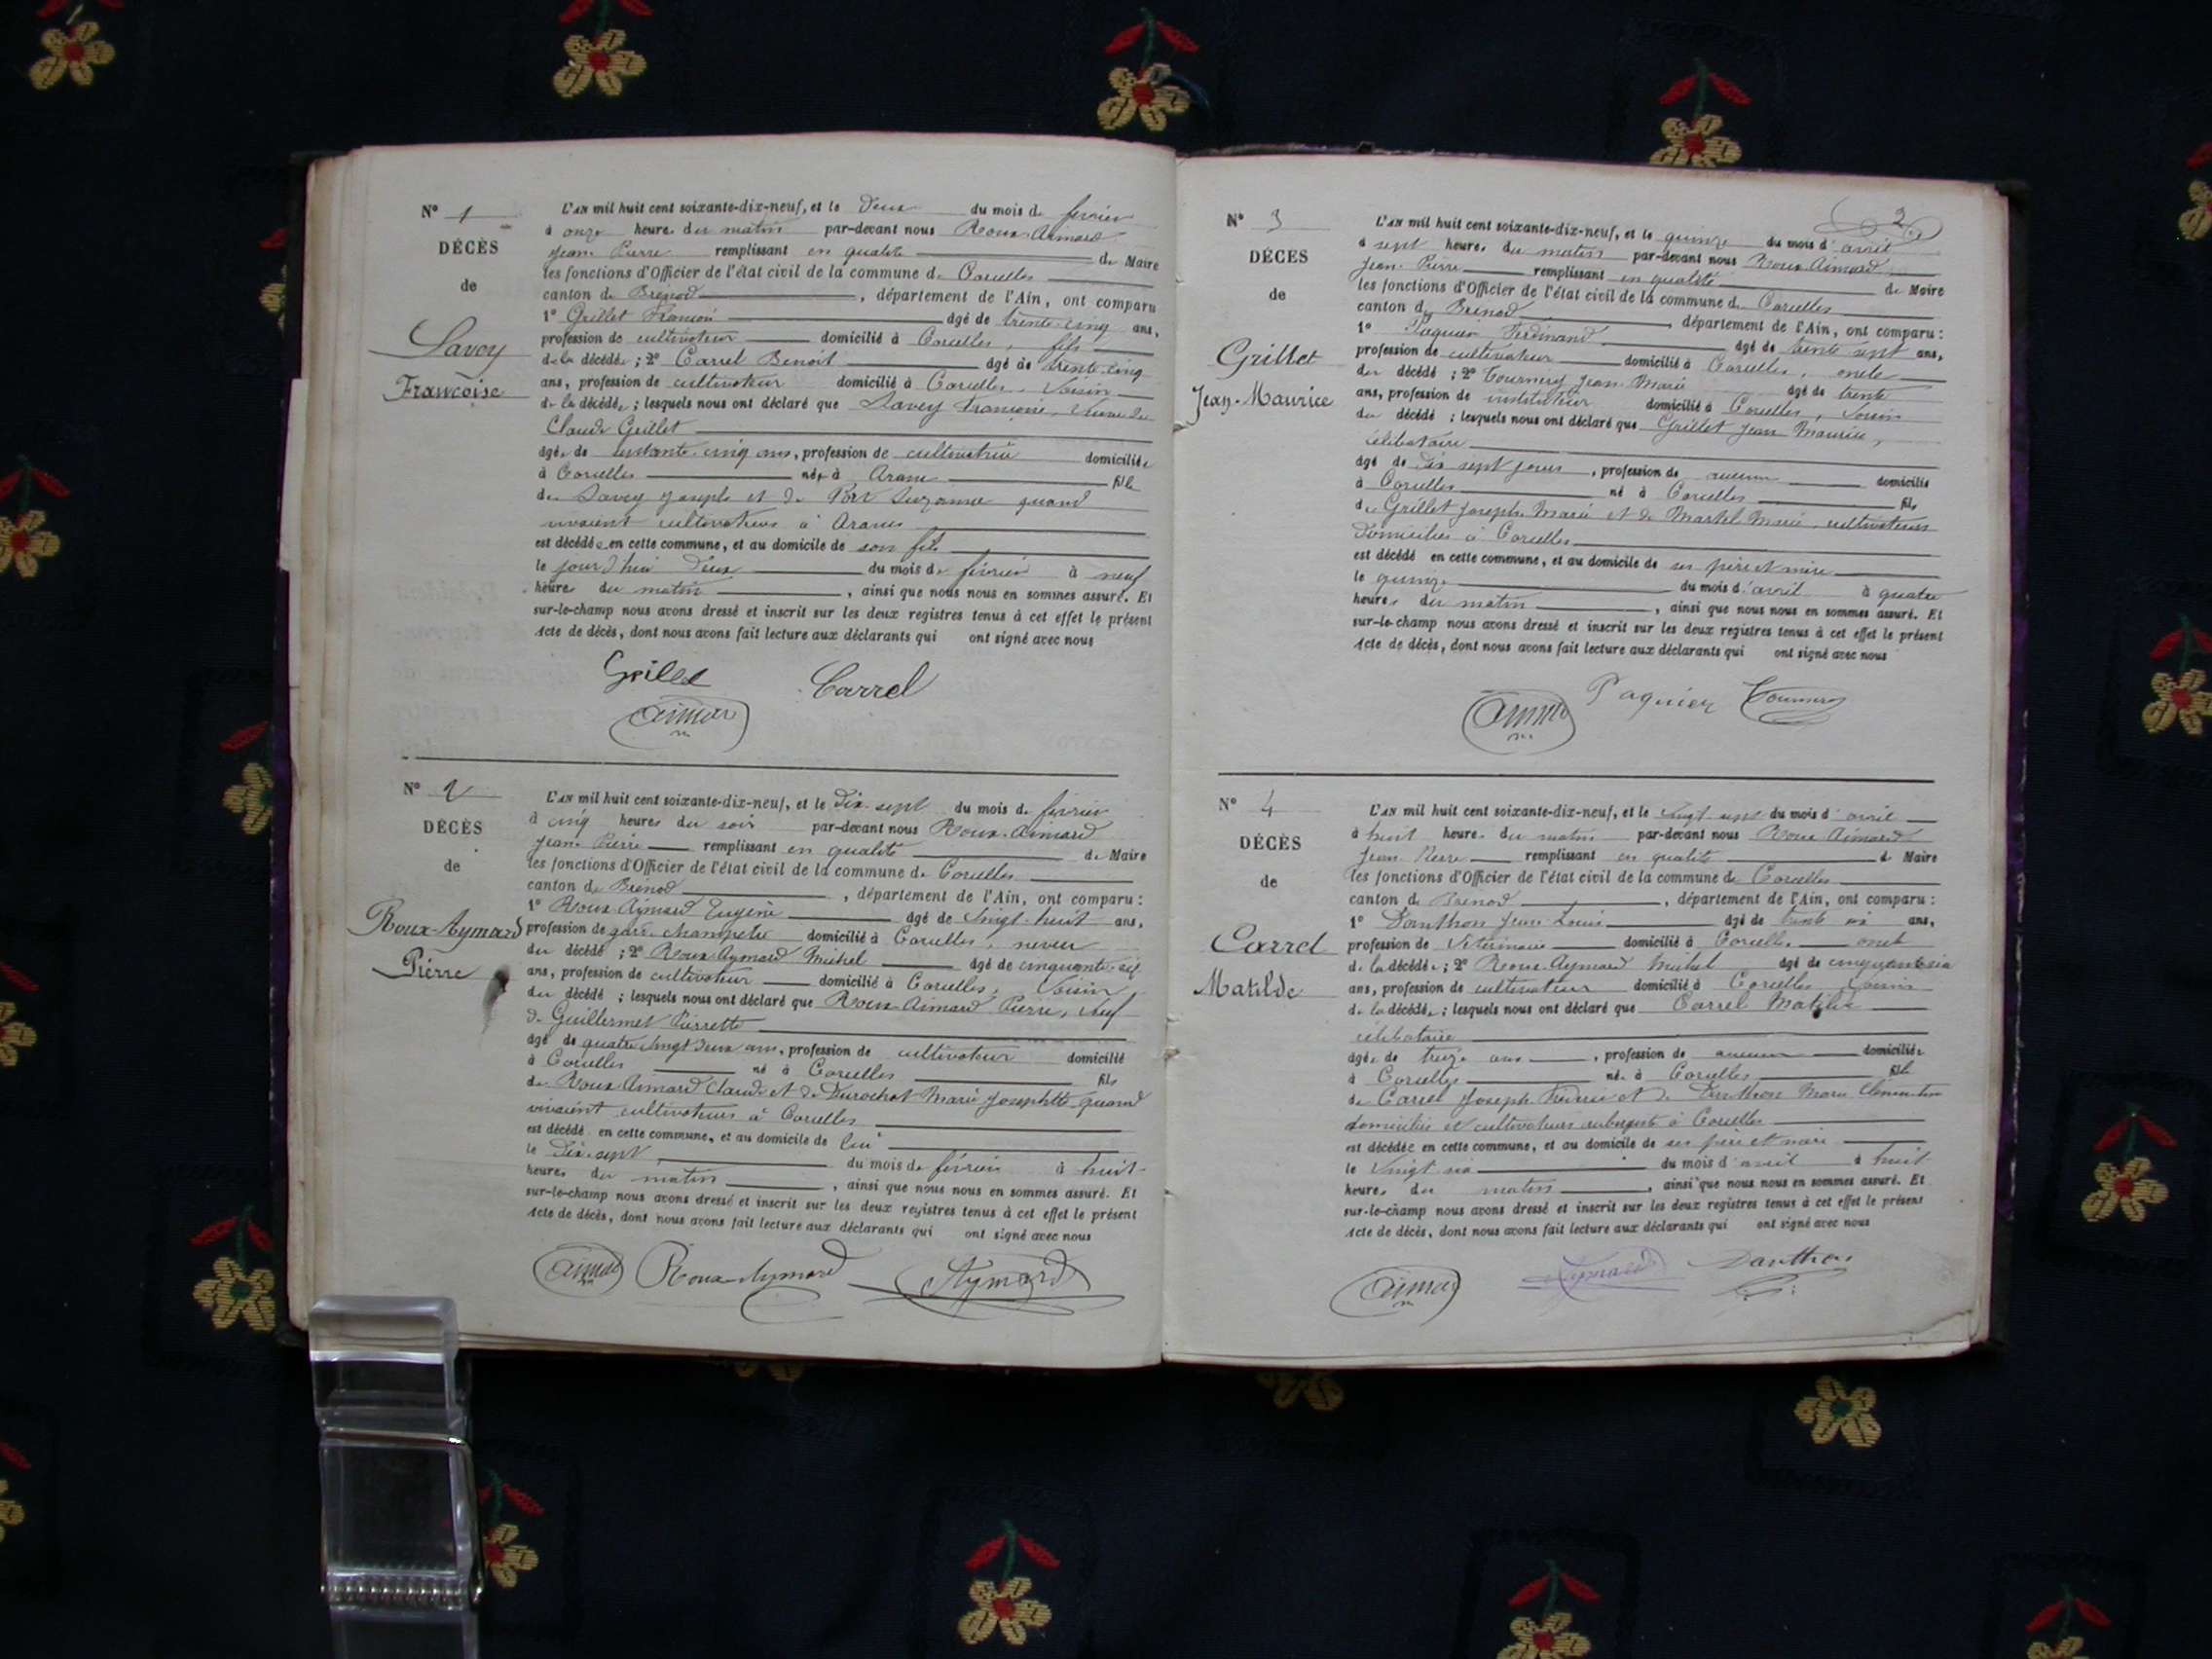 N° 1
DÉCÈS
de
Savoy
Françoise
L'AN mil huit cent soixante-dix-neuf, et le deux du mois de février
à onze heures du matin par-devant nous Roux-Aimard
Jean Pierre remplissant en qualité de Maire
les fonctions d'Officier de l'état civil de la commune de Corcelles
canton de Brénod, département de l'Ain, ont comparu
1° Grillet François âgé de trente-cinq ans,
profession de cultivateur domicilié à Corcelles, fils
de la décédée ; 2° Carrel Benoit âgé de trente-cinq
ans, profession de cultivateur domicilié à Corcelles, voisin
de la décédée ; lesquels nous ont déclaré que Savey Françoise, veuve de
Claude Grillet
âgée de cinq ans, profession de cultivatrice domiciliée
à Corcelles née à Aranc fille
de Savey Joseph et de Suzanne quand
vivaient cultivateurs à Aranc
est décédée en cette commune, et au domicile de son fils
le jourd'hui deux du mois de février à neuf
heures du matin, ainsi que nous nous en sommes assuré. Et
sur-le-champ nous avons dressé et inscrit sur les deux registres tenus à cet effet le présent
acte de décès, dont nous avons fait lecture aux déclarants qui ont signé avec nous
Grillet Carrel
Aimar
N° 2
DÉCÈS
de
Roux-Aymard
Pierre
L'AN mil huit cent soixante-dix-neuf, et le dix-sept du mois de février
à cinq heures du soir par-devant nous Roux-Aimard
Jean Pierre remplissant en qualité de Maire
les fonctions d'Officier de l'état civil de la commune de Corcelles
canton de Brénod, département de l'Ain, ont comparu :
1° Roux-Aymard Eugène âgé de vingt-huit ans,
profession de garde champêtre domicilié à Corcelles, neveu
du décédé ; 2° Roux-Aymard Michel âgé de cinquante-six
ans, profession de cultivateur domicilié à Corcelles, voisin
du décédé ; lesquels nous ont déclaré que Roux-Aimard Pierre, veuf
de Guillermet Pierrette
âgé de quatre vingt deux ans, profession de cultivateur domicilié
à Corcelles né à Corcelles fils
de Roux-Aimard Claude et de Durochat Marie Josephtte quand
vivaient cultivateurs à Corcelles
est décédé en cette commune, et au domicile de lui
le dix-sept du mois de février à huit
heures du matin, ainsi que nous nous en sommes assuré. Et
sur-le-champ nous avons dressé et inscrit sur les deux registres tenus à cet effet le présent
acte de décès, dont nous avons fait lecture aux déclarants qui ont signé avec nous
Aimar Roux-Aymard Aymard
2
N° 3
DÉCÈS
de
Grillet
Jean-Maurice
L'AN mil huit cent soixante-dix-neuf, et le quinze du mois d'avril
à sept heures du matin par-devant nous Roux-Aimard
Jean-Pierre remplissant en qualité de Maire
les fonctions d'Officier de l'état civil de la commune de Corcelles
canton de Brénod, département de l'Ain, ont comparu :
1° Paquier Ferdinand âgé de trente sept ans,
profession de cultivateur domicilié à Corcelles, oncle
du décédé ; 2° Tournery Jean-Marie âgé de trente
ans, profession de instituteur domicilié à Corcelles, voisin
du décédé ; lesquels nous ont déclaré que Grillet Jean Maurice,
célibataire
âgé de dix sept jours, profession de aucune domicilié
à Corcelles né à Corcelles fils
de Grillet Joseph Marie et de Martel Marie cultivateurs
domiciliés à Corcelles
est décédé en cette commune, et au domicile de ses père et mère
le quinze du mois d'avril à quatre
heures du matin, ainsi que nous nous en sommes assuré. Et
sur-le-champ nous avons dressé et inscrit sur les deux registres tenus à cet effet le présent
acte de décès, dont nous avons fait lecture aux déclarants qui ont signé avec nous
Aimar Paquier Tournery
N° 4
DÉCÈS
de
Carrel
Matilde
L'AN mil huit cent soixante-dix-neuf, et le vingt-sept du mois d'avril
à huit heures du matin par-devant nous Roux Aimard
Jean Pierre remplissant en qualité de Maire
les fonctions d'Officier de l'état civil de la commune de Corcelles
canton de Brénod, département de l'Ain, ont comparu :
1° Danthon Jean Louis âgé de trente six ans,
profession de Vétérinaire domicilié à Corcelles oncle
de la décédée ; 2° Roux-Aymard Michel âgé de cinquante six
ans, profession de cultivateur domicilié à Corcelles voisin
de la décédée ; lesquels nous ont déclaré que Carrel Matilde
célibataire
âgée de treize ans, profession de aucune domiciliée
à Corcelles née à Corcelles fille
de Carrel Joseph et de Danthon Marie Clémentine
domiciliés et cultivateurs à Corcelles
est décédée en cette commune, et au domicile de ses père et mère
le vingt six du mois d'avril à huit
heures du matin, ainsi que nous nous en sommes assuré. Et
sur-le-champ nous avons dressé et inscrit sur les deux registres tenus à cet effet le présent
acte de décès, dont nous avons fait lecture aux déclarants qui ont signé avec nous
Aimar Aymard Danthon